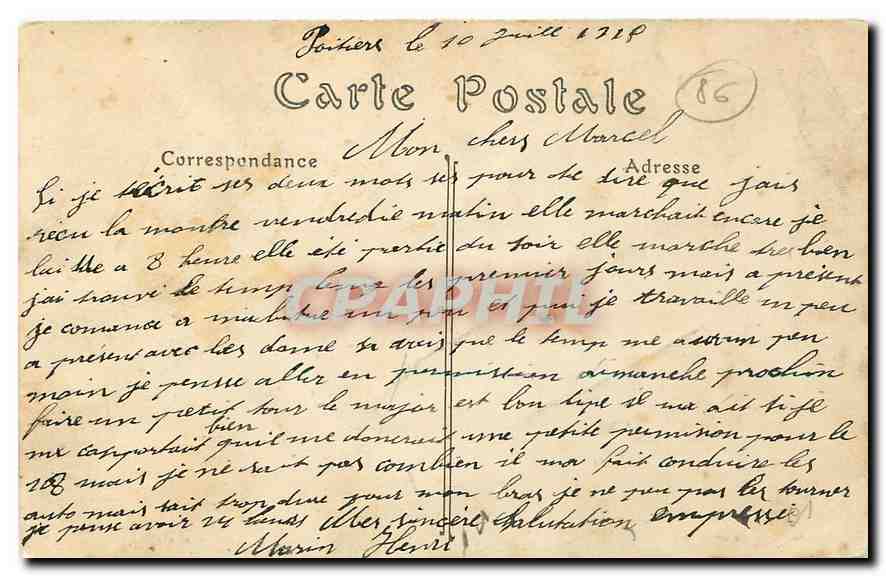 Poitiers le 10 Juill 1915
Carte Postale
86
Mon chers Marcel
Correspondance
Adresse
Si je técrit ses deux mots ses pour te dire que jais
reçu la montre vendredie matin elle marchait encore je
8 heure elle été partie du soir elle marche tres bien
jai trouvé le temp long les premier jours mais a présent
je comance a mabituer un peu et puis je travaille un peu
a présent avec les dame je vois que le temp me a un peu
moin je pensse aller en permission dimanche prochin
faire un petit tour le major est bon tipe il ma dit si je
me capportait bien quil me donerait une petite permision pour le
18 mais je ne sait pas combien il ma fait conduire les
auto mais sait trop dure pour mon bras je ne peu pas les tourner
je pense avoir 24 heures Mes sincère Salutation empressé
Marin Henri
CPAPHIL